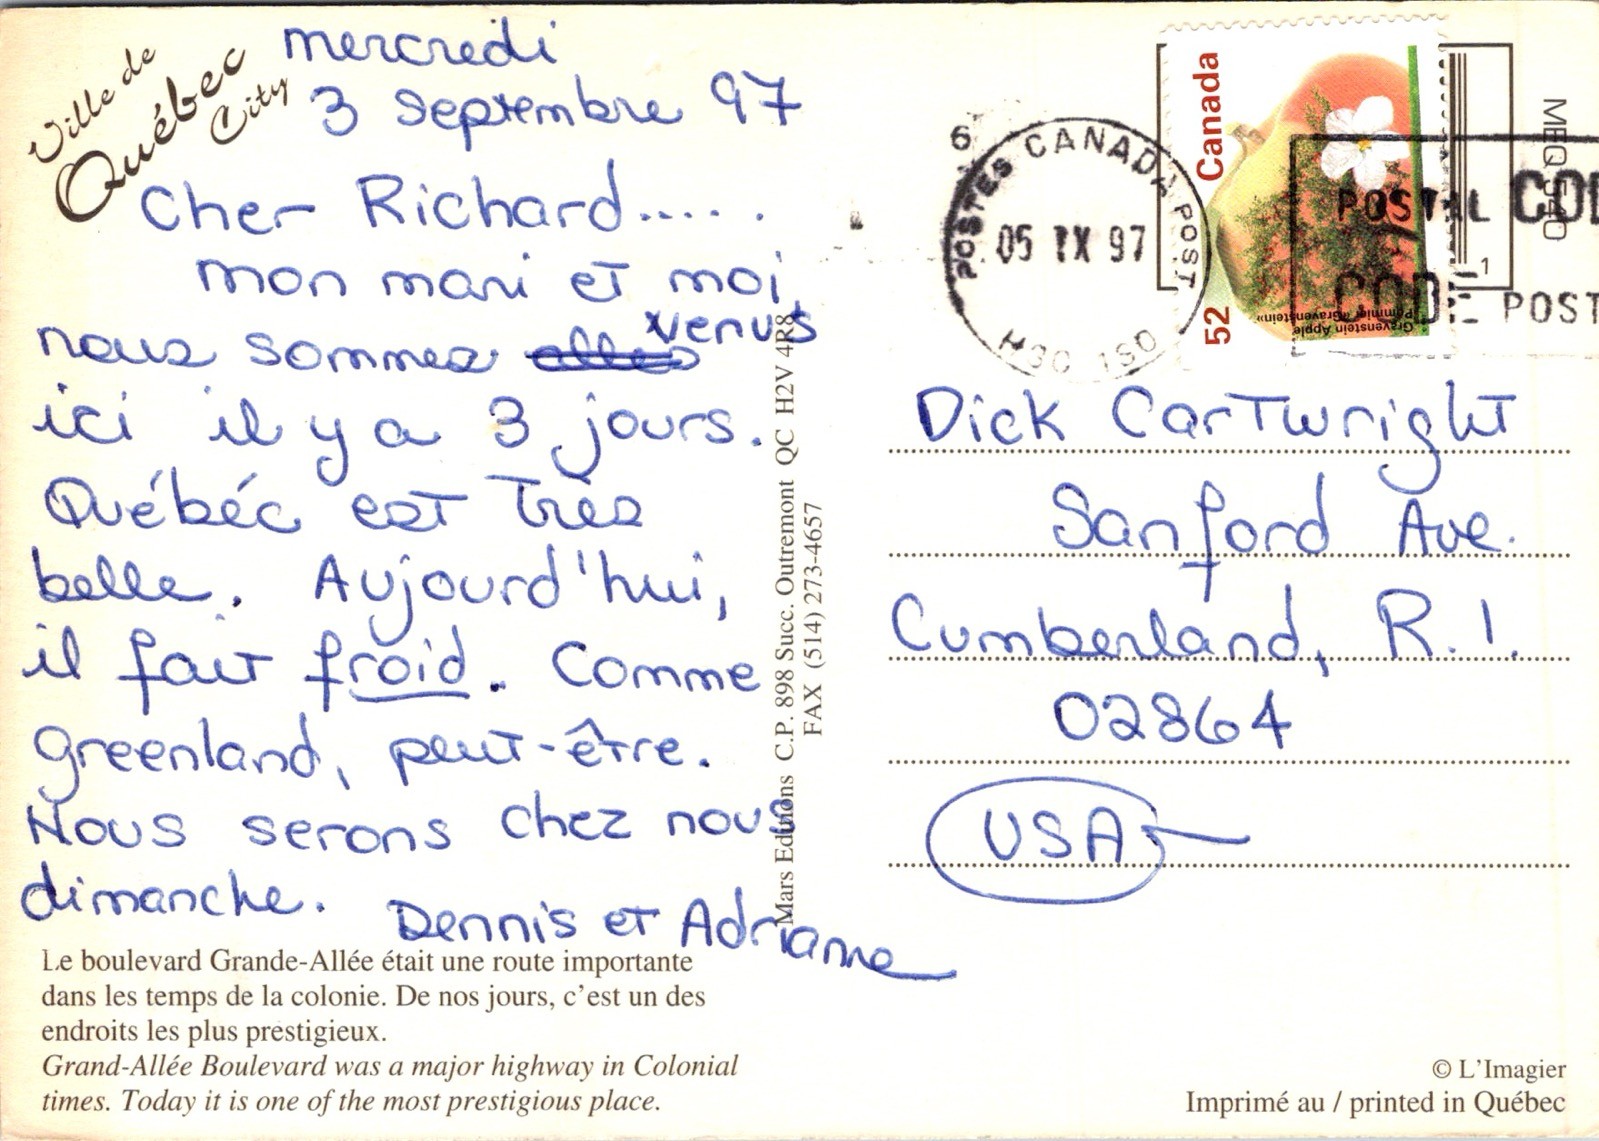 Ville de
Québec
City
mercredi
3 Septembre 97
Cher Richard.....
mon mari et moi,
nous sommes allés venus
ici il y a 3 jours.
Québéc est très
belle. Aujourd'hui,
il fait froid. Comme
greenland, peut-être.
Nous serons chez nous
dimanche. Dennis et Adrianne
Le boulevard Grande-Allée était une route importante
dans les temps de la colonie. De nos jours, c'est un des
endroits les plus prestigieux.
Grand-Allée Boulevard was a major highway in Colonial
times. Today it is one of the most prestigious place.
Mars Editions C.P. 898 Succ. Outremont QC H2V 4R8
FAX (514) 273-4657
6
POSTES CANADA POST
05 IX 97
Canada
52
Gravenstein Apple
Pommier «Gravenstein»
POSTAL COD
CODE POST
1
MEQ 540
Dick Cartwright
Sanford Ave.
Cumberland, R.I.
02864
USA
© L'Imagier
Imprimé au / printed in Québec